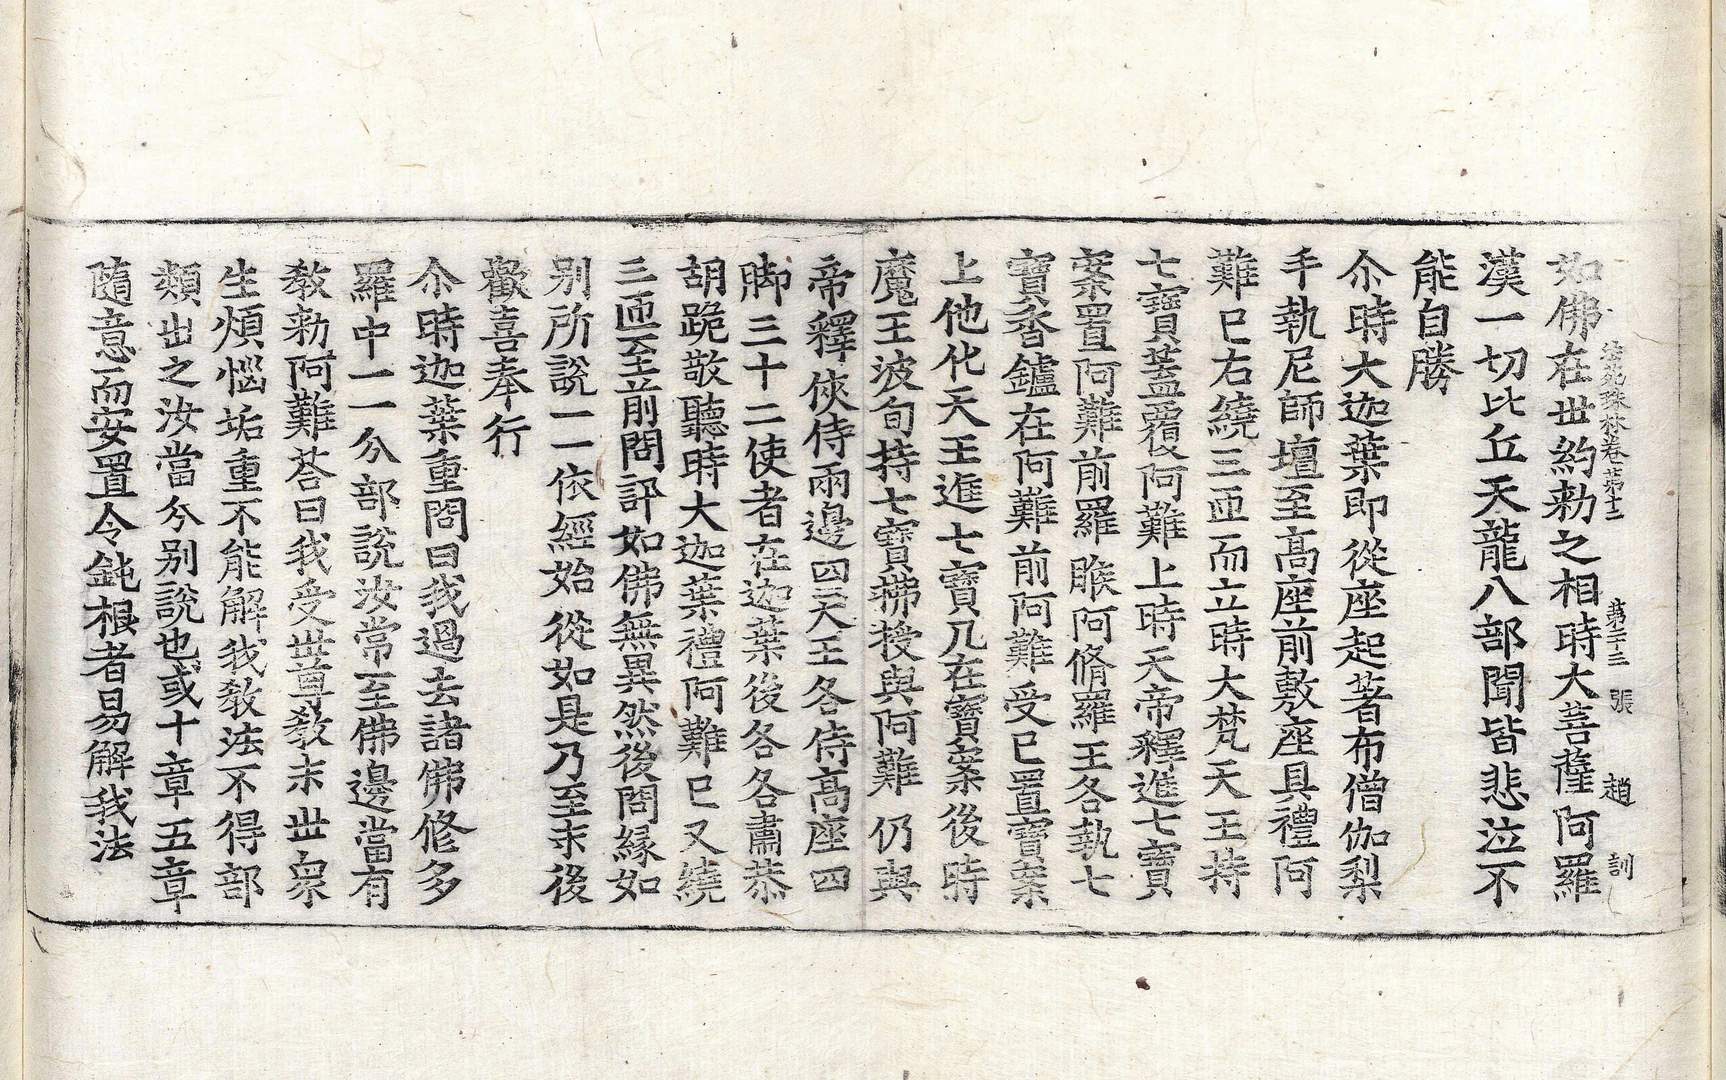 法苑珠林卷第十二　第二十三　張　趙　訓
如佛在世約勑之相時大菩薩阿羅
漢一切比丘天龍八部聞皆悲泣不
能自勝
尒時大迦葉即從座起著布僧伽梨
手執尼師壇至髙座前敷座具禮阿
難已右繞三匝而立時大梵天王持
七寶盖覆阿難上時天帝釋進七寶
案置阿難前羅睺阿脩羅王各執七
寶香鑪在阿難前阿難受已置寶案
上他化天王進七寶几在寶案後時
魔王波旬持七寶拂授與阿難仍與
帝釋俠侍兩邊四天王各侍髙座四
脚三十二使者在迦葉後各各肅恭
胡跪敬聽時大迦葉禮阿難已又繞
三匝至前問訊如佛無異然後問縁如
别所說一一依經始從如是乃至末後
歡喜奉行
尒時迦葉重問曰我過去諸佛修多
羅中一一分部說汝常至佛邊當有
教勑阿難荅曰我受世尊教末世衆
生煩惱垢重不能解我教法不得部
類出之汝當分别說也或十章五章
隨意而安置令鈍根者易解我法